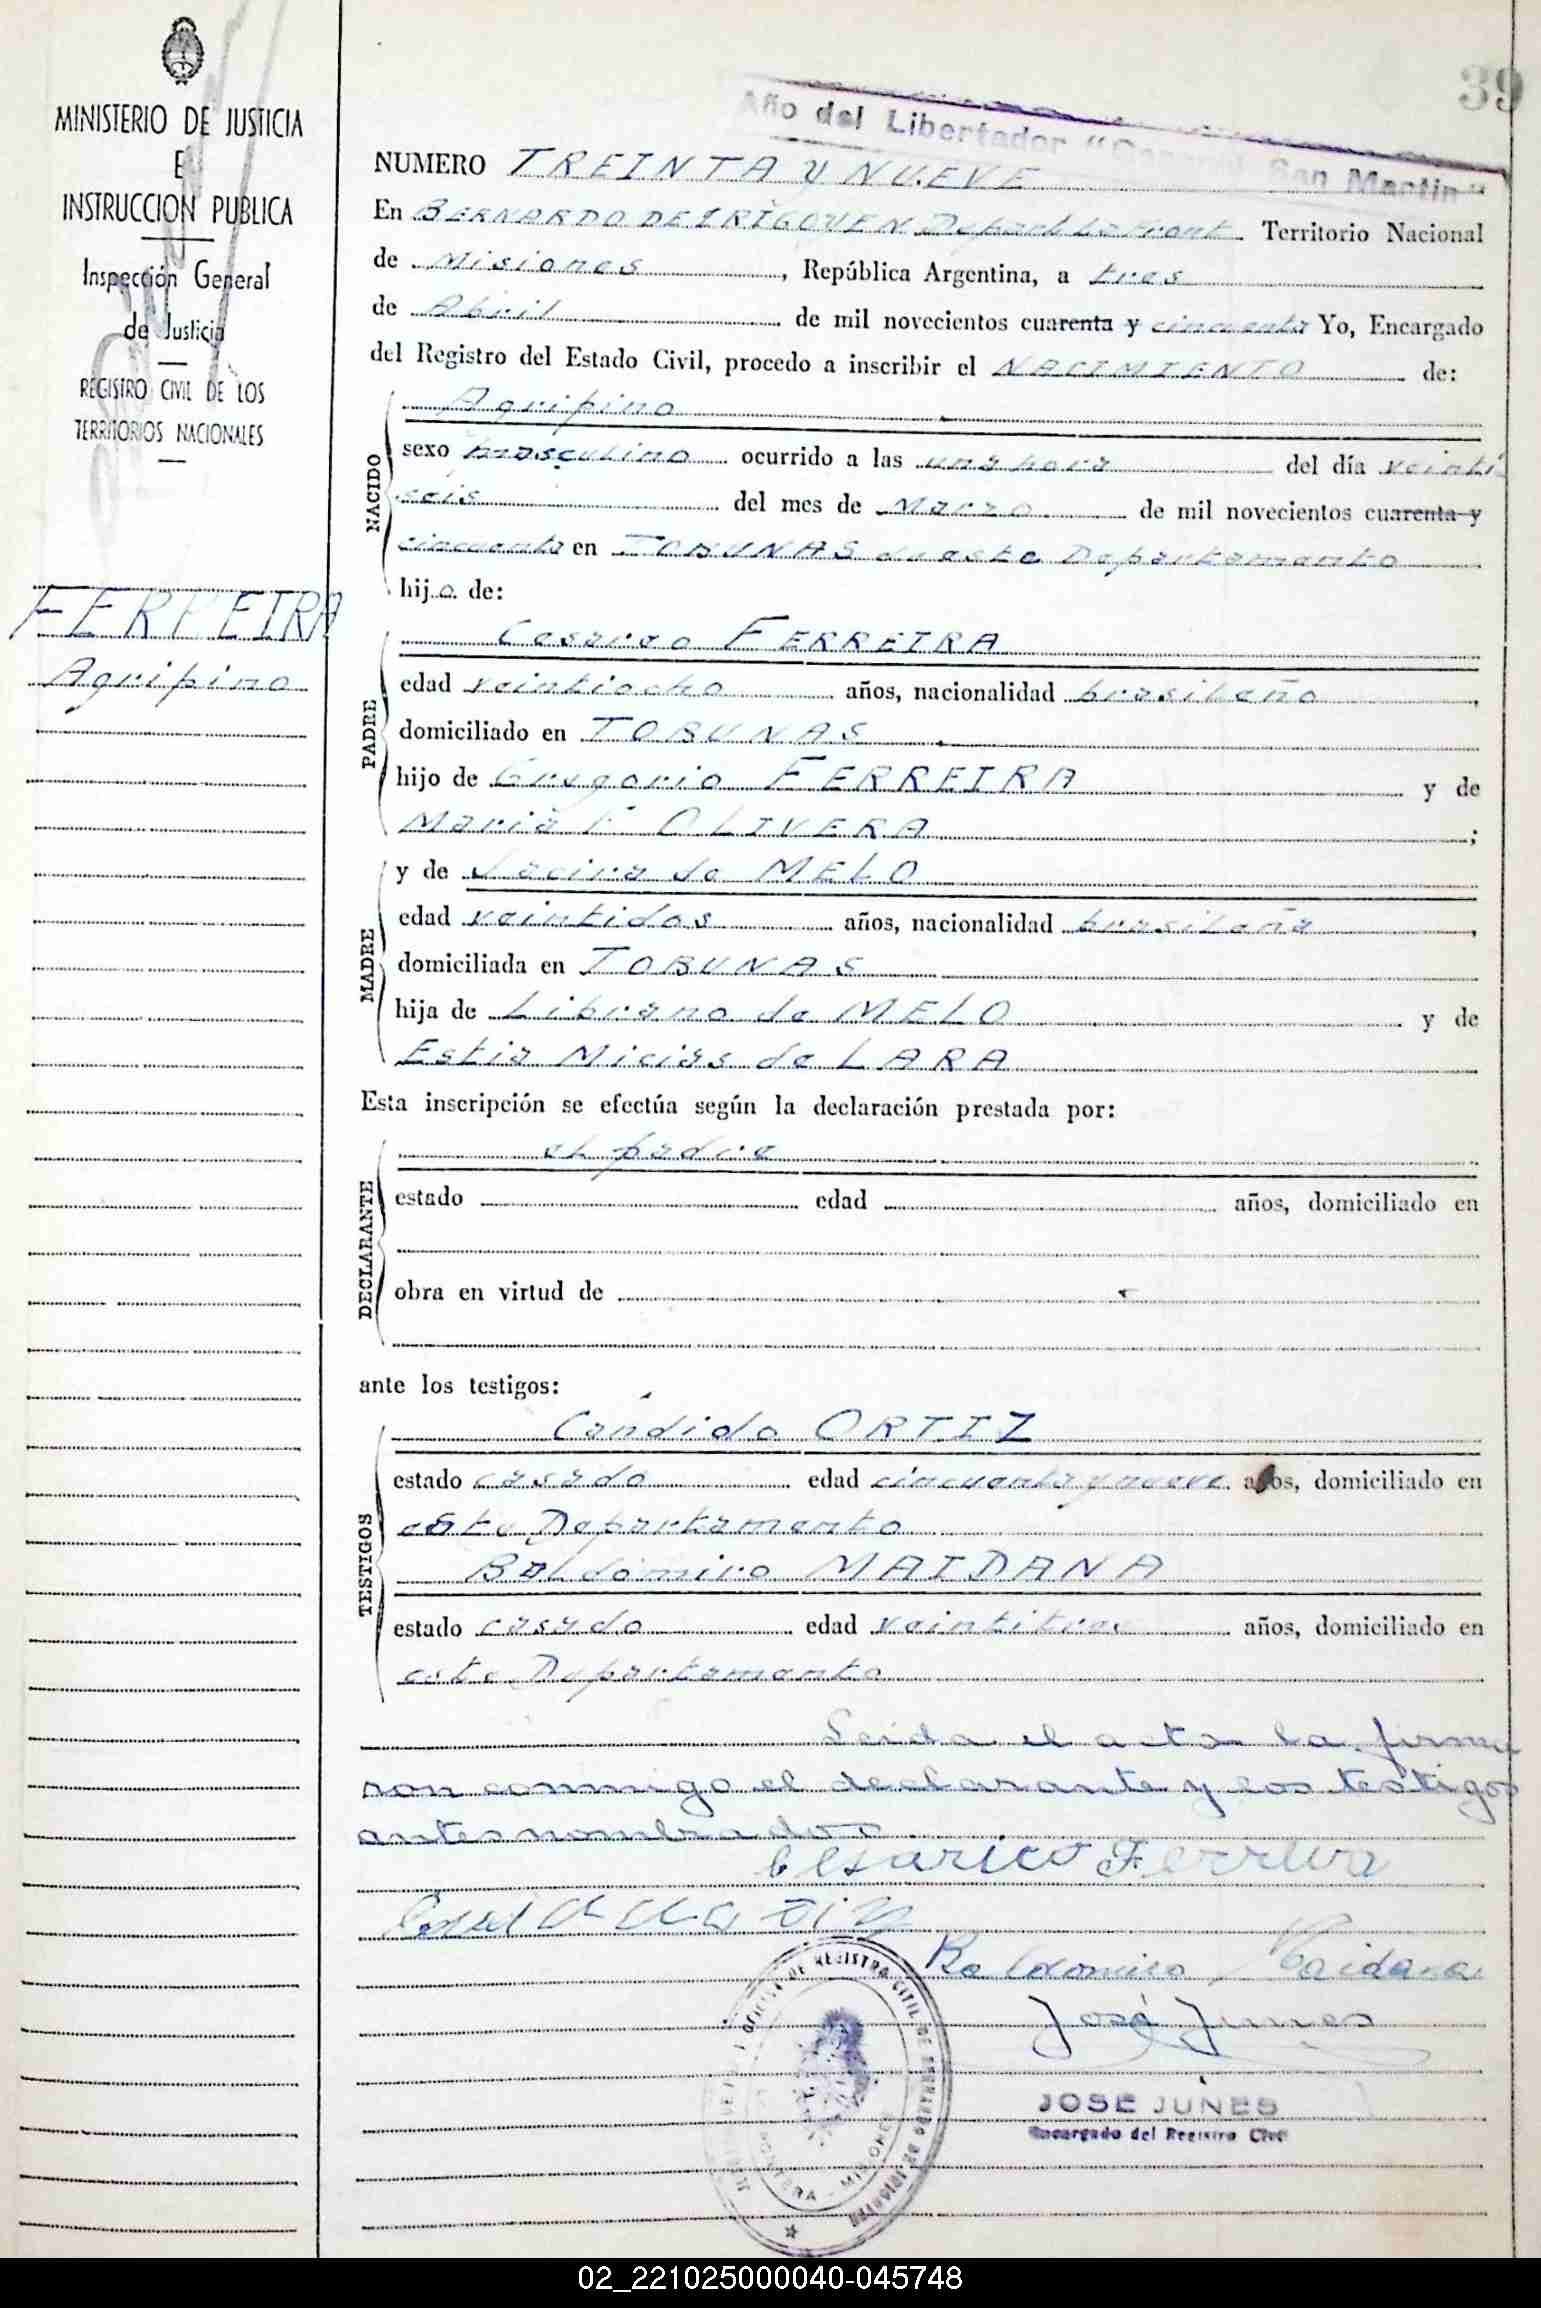 39
MINISTERIO DE JUSTICIA
E
INSTRUCCION PUBLICA
Inspección General
de Justicia
REGISTRO CIVIL DE LOS
TERRITORIOS NACIONALES
FERREIRA
Agripino
Año del Libertador "General San Martin"
NUMERO TREINTA Y NUEVE
En BERNARDO DE IRIGOYEN Depart La Front. Territorio Nacional
de Misiones, República Argentina, a tres
de Abril de mil novecientos cuarenta y cincuenta Yo, Encargado
del Registro del Estado Civil, procedo a inscribir el NACIMIENTO de:
NACIDO
Agripino
sexo masculino ocurrido a las una hora del día veinti
seis del mes de Marzo de mil novecientos cuarenta y
cincuenta en TOBUNAS de este Departamento
hijo de:
PADRE
Cesareo FERREIRA
edad veintiocho años, nacionalidad brasileño,
domiciliado en TOBUNAS
hijo de Gregorio FERREIRA y de
Maria F OLIVERA;
MADRE
y de Jacira de MELO
edad veintidos años, nacionalidad brasileña,
domiciliada en TOBUNAS
hija de Librano de MELO y de
Estia Micias de LARA
Esta inscripción se efectúa según la declaración prestada por:
DECLARANTE
el padre
estado edad años, domiciliado en
obra en virtud de
ante los testigos:
TESTIGOS
Cándido ORTIZ
estado casado edad cincuenta y nueve años, domiciliado en
este Departamento
Baldomiro MAIDANA
estado casado edad veintitres años, domiciliado en
este Departamento
Leida el acta la firma
ron conmigo el declarante y los testigos
antes nombrados
Cesarico Ferreira
Baldomiro Maidana
José Junes
JOSE JUNES
Encargado del Registro Civil
OFICINA DE REGISTRO CIVIL DE BERNARDO DE IRIGOYEN
FRONTERA - MISIONES
02_221025000040-045748